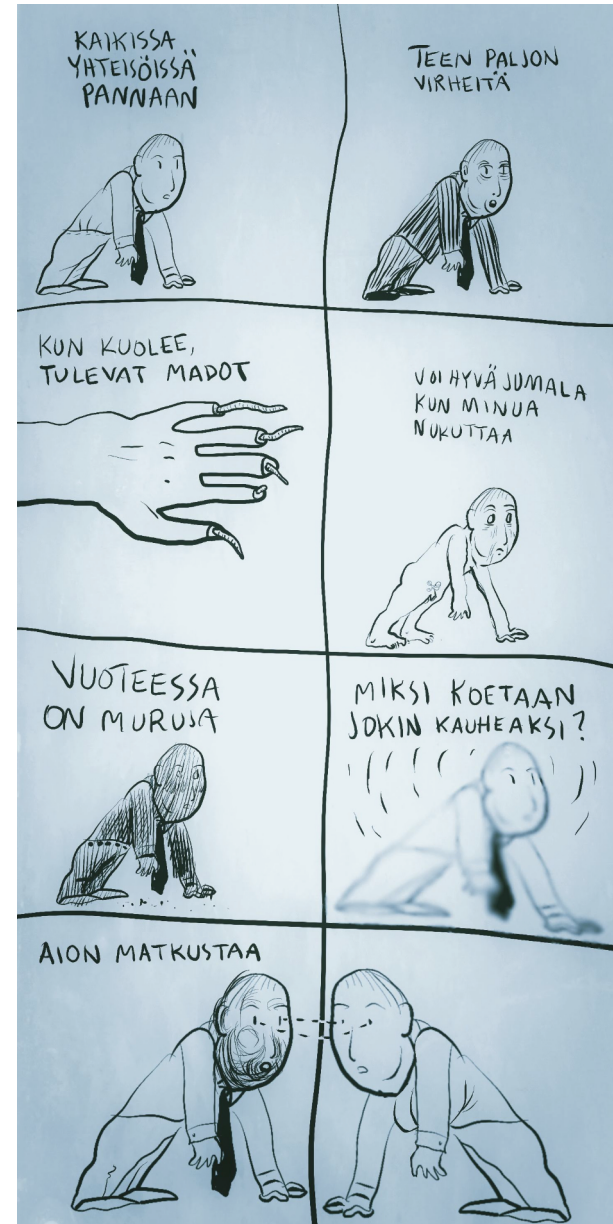 KAIKISSA
YHTEISÖISSÄ
PANNAAN
TEEN PALJON
VIRHEITÄ
KUN KUOLEE,
TULEVAT MADOT
VOI HYVÄ JUMALA
KUN MINUA
NUKUTTAA
VUOTEESSA
ON MURUJA
MIKSI KOETAAN
JOKIN KAUHEAKSI?
AION MATKUSTAA